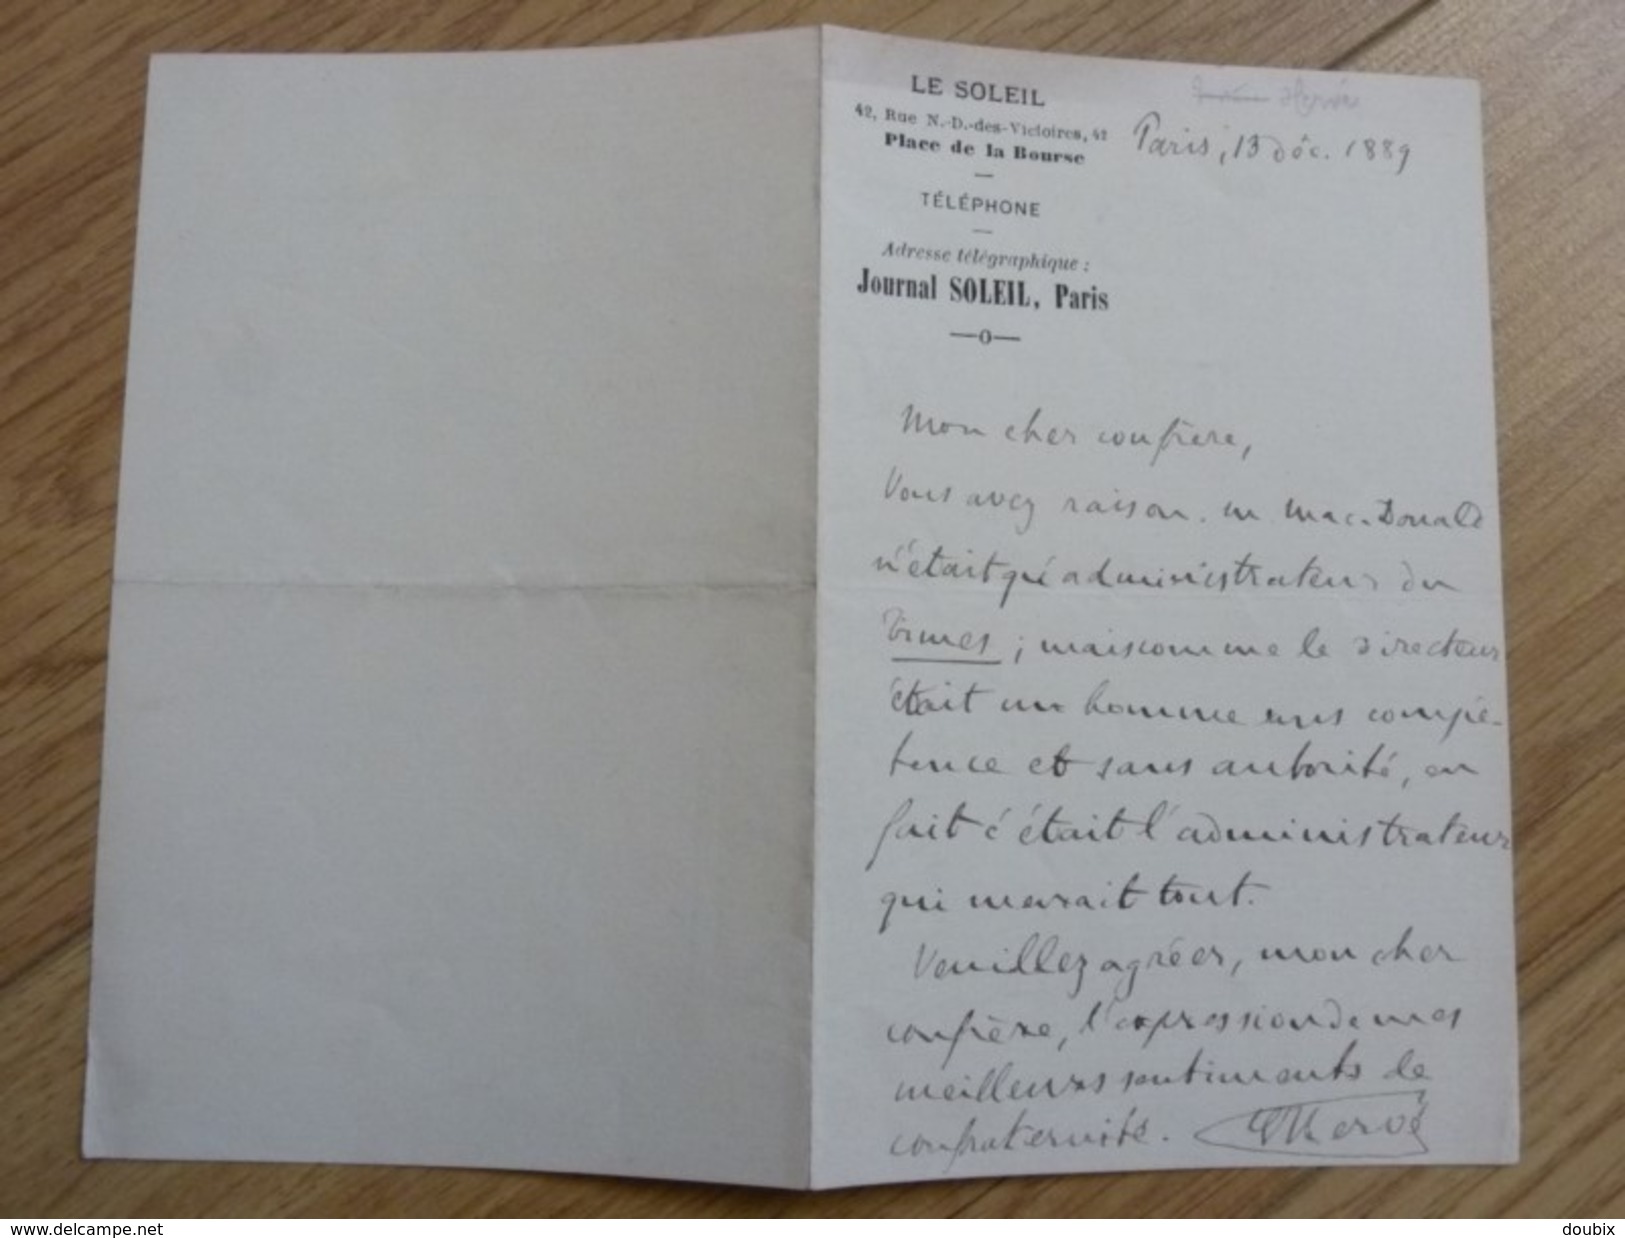 LE SOLEIL
42, Rue N.-D.-des-Victoires, 42
Place de la Bourse
TÉLÉPHONE
Adresse télégraphique :
Journal SOLEIL, Paris
Hervé
Paris, 13 Déc. 1889
Mon cher confrère,
Vous avez raison. M Mac-Donald
n'était qu'administrateur du
Times ; mais comme le directeur
était un homme sans compé-
tence et sans autorité, en
fait c'était l'administrateur
qui menait tout.
Veuillez agréer, mon cher
confrère, l'expression de mes
meilleurs sentiments de
confraternité. EHervé
www.delcampe.net
doubix